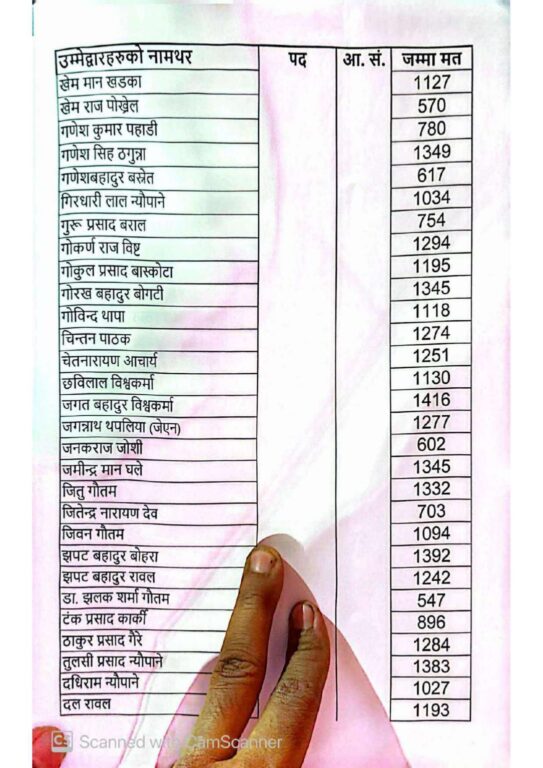 उम्मेद्वारहरुको नामथर पद आ. सं. जम्मा मत
खेम मान खडका 1127
खेम राज पोख्रेल 570
गणेश कुमार पहाडी 780
गणेश सिह ठगुन्ना 1349
गणेशबहादुर बस्नेत 617
गिरधारी लाल न्यौपाने 1034
गुरू प्रसाद बराल 754
गोकर्ण राज विष्ट 1294
गोकुल प्रसाद बास्कोटा 1195
गोरख बहादुर बोगटी 1345
गोविन्द थापा 1118
चिन्तन पाठक 1274
चेतनारायण आचार्य 1251
छविलाल विश्वकर्मा 1130
जगत बहादुर विश्वकर्मा 1416
जगन्नाथ थपलिया (जेएन) 1277
जनकराज जोशी 602
जमीन्द्र मान घले 1345
जितु गौतम 1332
जितेन्द्र नारायण देव 703
जिवन गौतम 1094
झपट बहादुर बोहरा 1392
झपट बहादुर रावल 1242
डा. झलक शर्मा गौतम 547
टंक प्रसाद कार्की 896
ठाकुर प्रसाद गैरे 1284
तुलसी प्रसाद न्यौपाने 1383
दधिराम न्यौपाने 1027
दल रावल 1193
CS Scanned with CamScanner